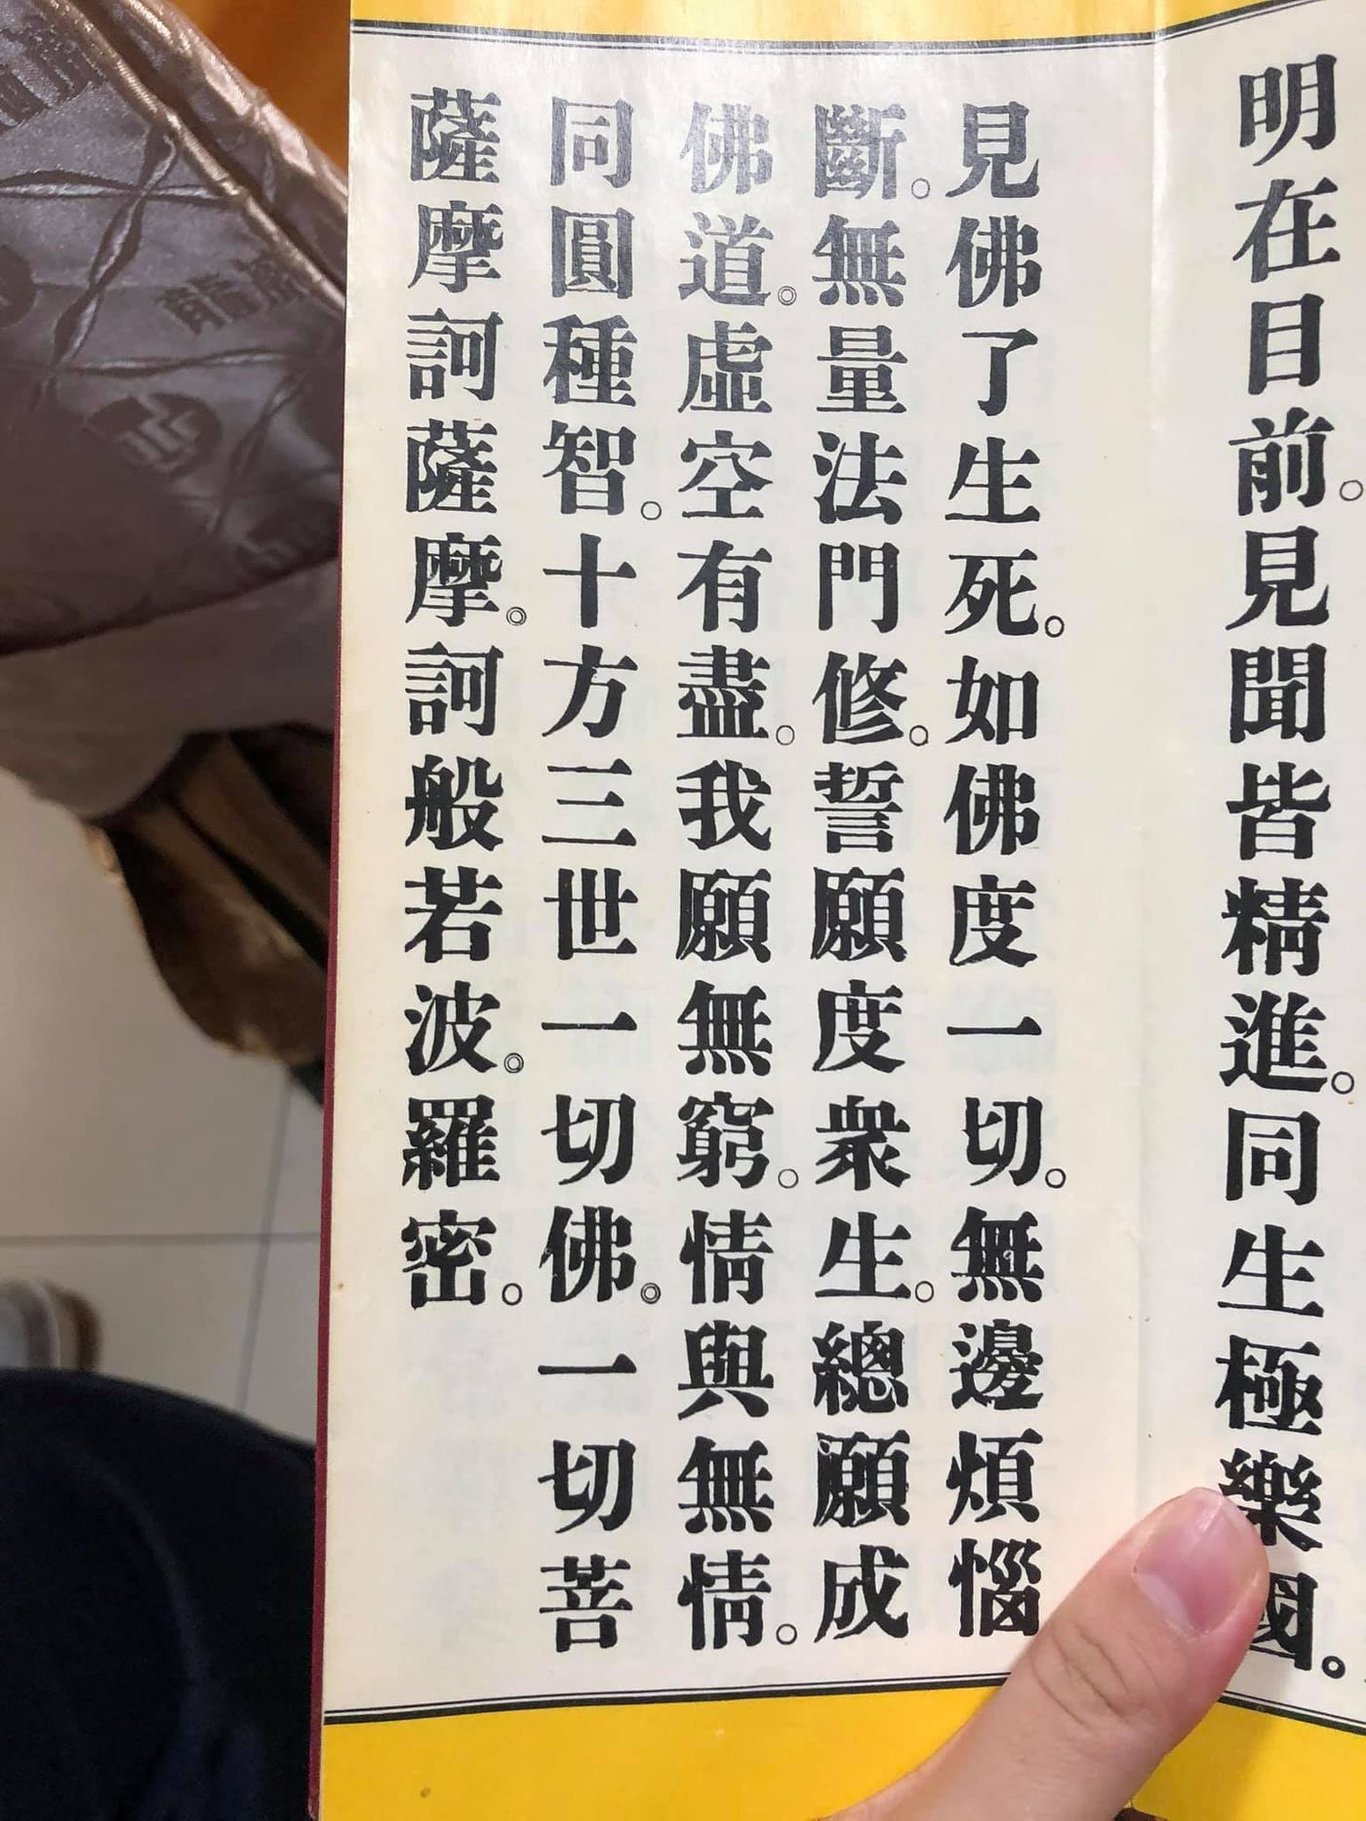 明在目前。見聞皆精進。同生極樂國。
見佛了生死。如佛度一切。無邊煩惱
斷。無量法門修。誓願度眾生。總願成
佛道◎虛空有盡。我願無窮。情與無情。
同圓種智。十方三世一切佛◎一切菩
薩摩訶薩摩◎訶般若波◎羅密。